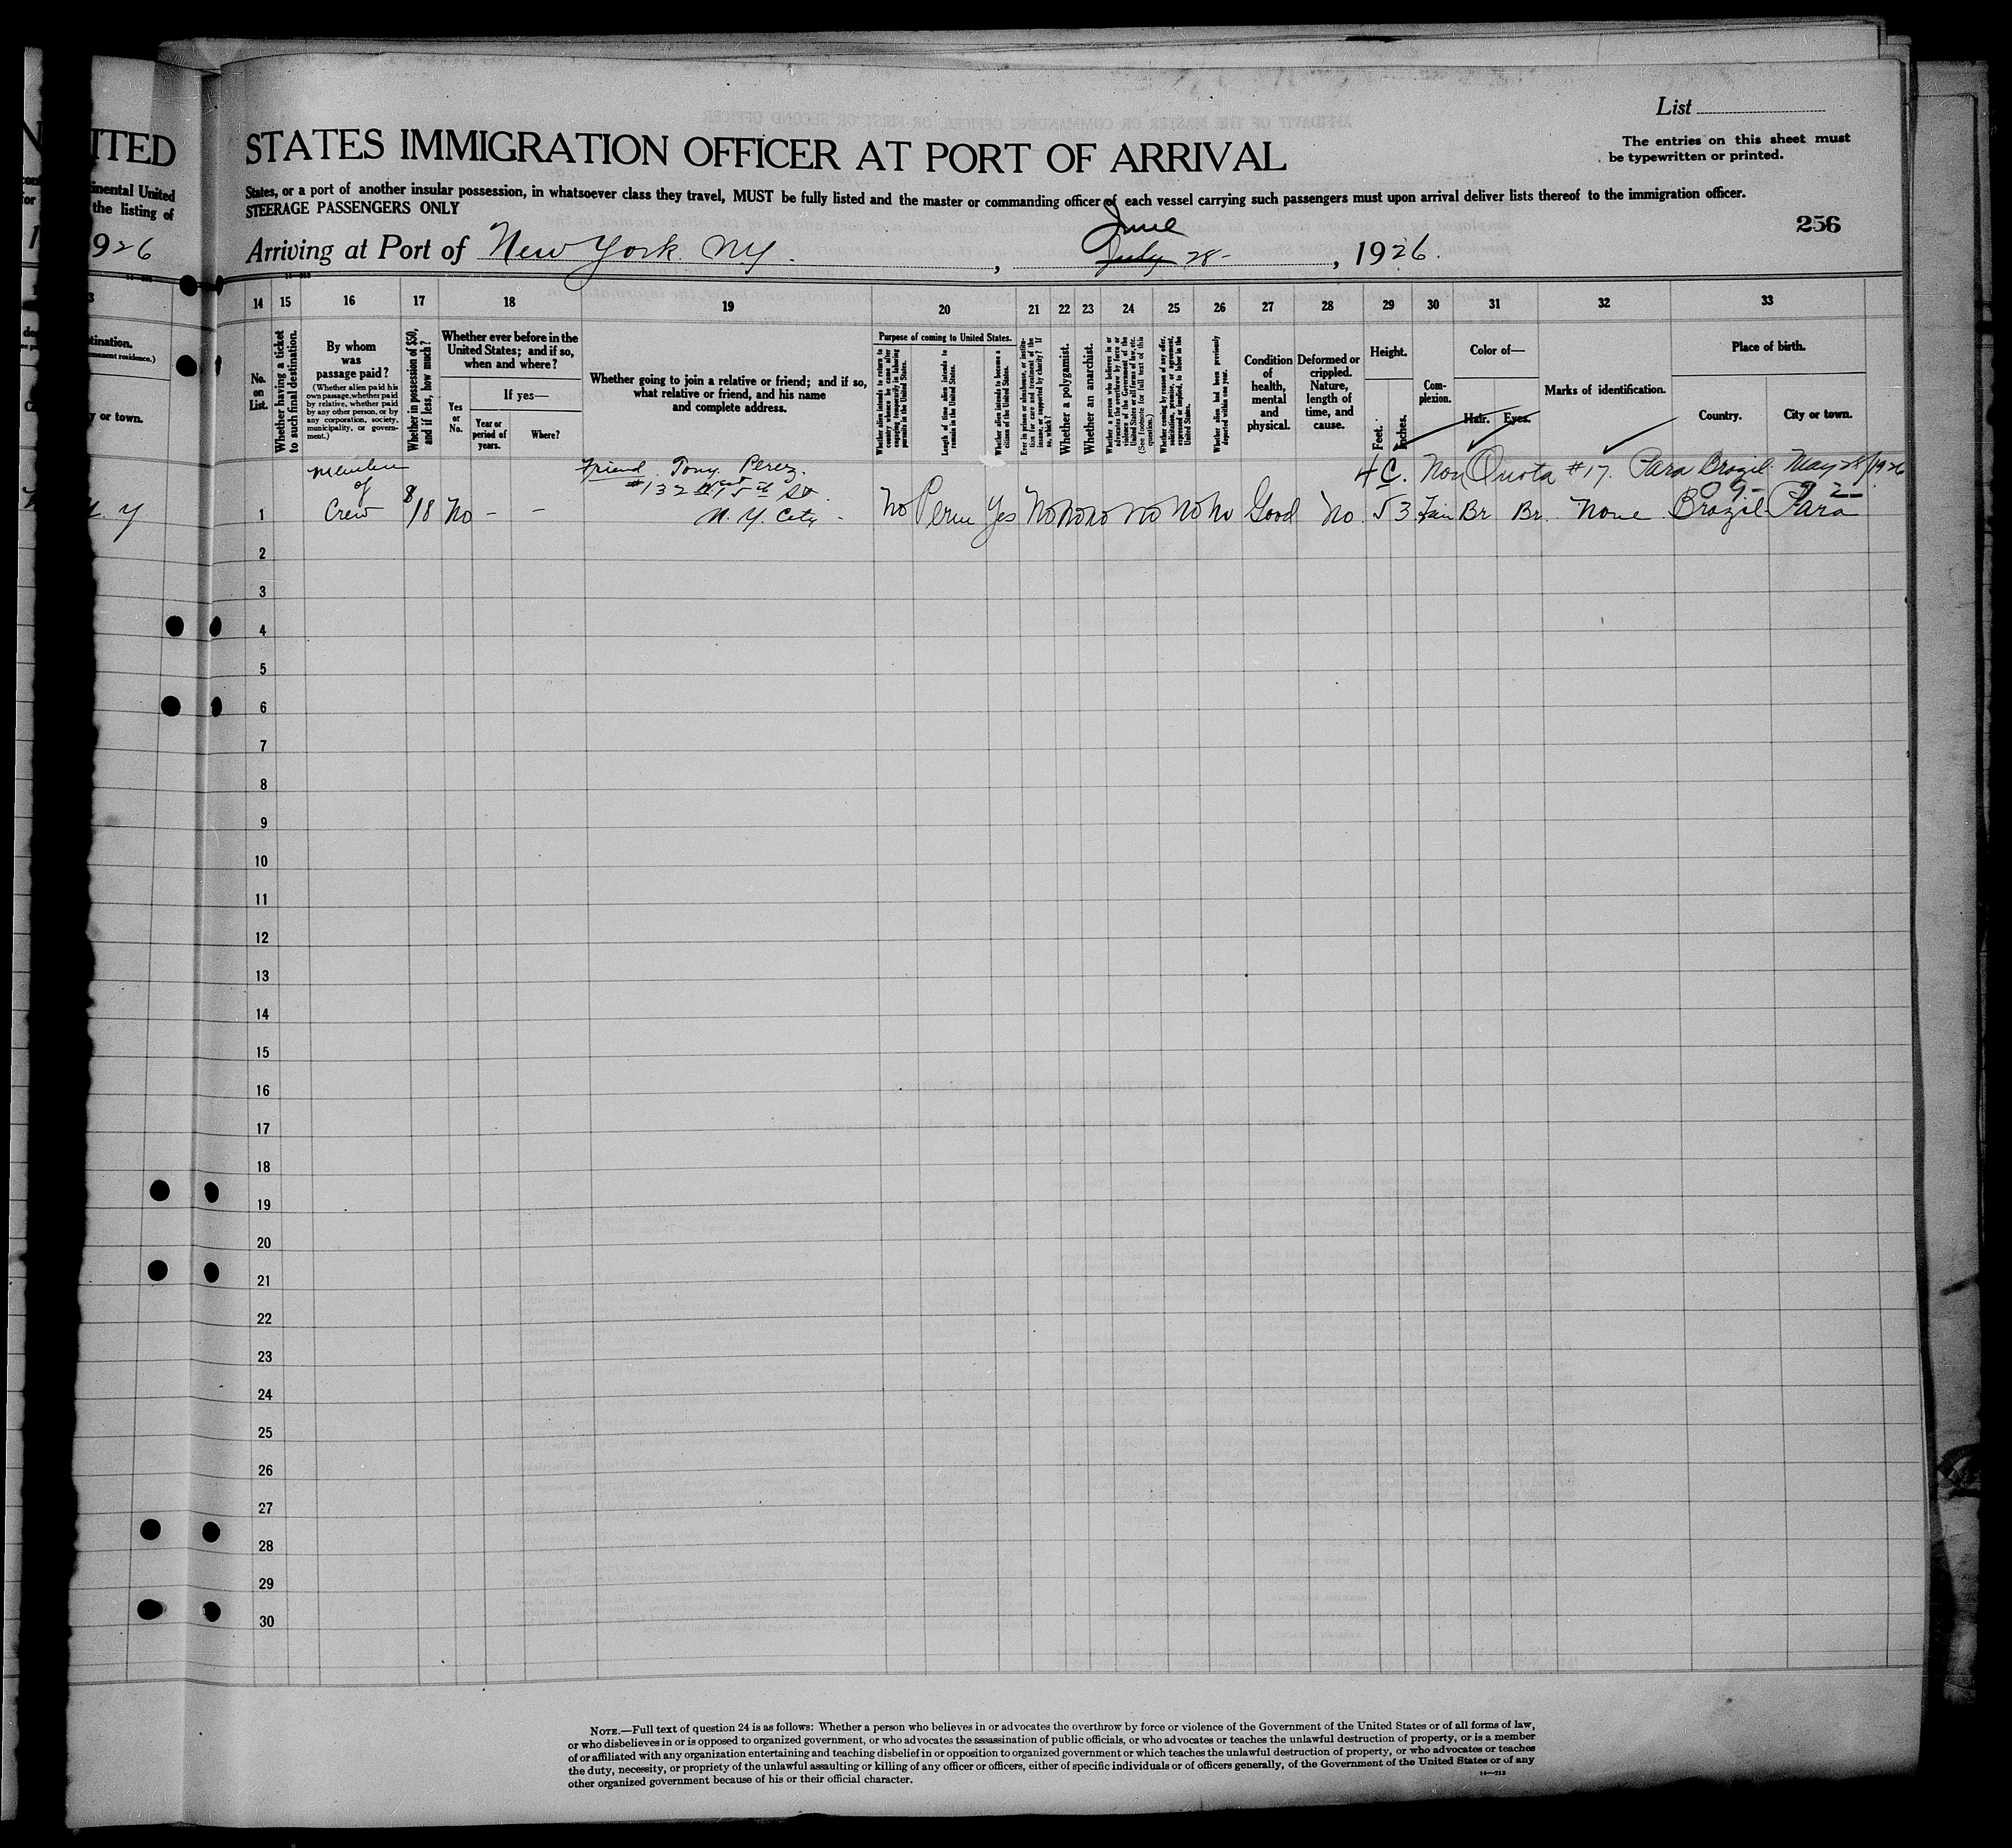 List
ITED
STATES IMMIGRATION OFFICER AT PORT OF ARRIVAL
The entries on this sheet must
be typewritten or printed.
inental United
the listing of
States, or a port of another insular possession, in whatsoever class they travel, MUST be fully listed and the master or commanding officer of each vessel carrying such passengers must upon arrival deliver lists thereof to the immigration officer.
STEERAGE PASSENGERS ONLY
256
926
June
Arriving at Port of New York NY. , July 28- , 1926.
14 15 16 17 18 19 20 21 22 23 24 25 26 27 28 29 30 31 32 33
No. on List.
Whether having a ticket to such final destination.
By whom was passage paid?
(Whether alien paid his own passage, whether paid by relative, whether paid by any other person, or by any corporation, society, municipality, or government.)
Whether in possession of $50, and if less, how much?
Whether ever before in the United States; and if so, when and where?
Yes or No.
If yes—
Year or period of years.
Where?
Whether going to join a relative or friend; and if so, what relative or friend, and his name and complete address.
Purpose of coming to United States.
Whether alien intends to return to country whence he came after engaging temporarily in laboring pursuits in the United States.
Length of time alien intends to remain in the United States.
Whether alien intends to become a citizen of the United States.
Ever in prison or almshouse, or institution for care and treatment of the insane, or supported by charity? If so, which?
Whether a polygamist.
Whether an anarchist.
Whether a person who believes in or advocates the overthrow by force or violence of the Government of the United States or all forms of law, etc. (See footnote for full text of this question.)
Whether coming by reason of any offer, solicitation, promise, or agreement, expressed or implied, to labor in the United States.
Whether alien had been previously deported within one year.
Condition of health, mental and physical.
Deformed or crippled. Nature, length of time, and cause.
Height.
Feet. Inches.
Complexion.
Color of—
Hair. Eyes.
Marks of identification.
Place of birth.
Country. City or town.
tination.
manent residence.)
y or town.
4 C. Non Quota #17. Para Brazil May 28/1926
member of Crew $18 No - - Friend Tony Perez.
#132 West 15th St.
N. Y. City -
N. Y
1 No Perm Yes No No No No No No Good No. 5 3 Fair Br Br. None Brazil Para
2
3
4
5
6
7
8
9
10
11
12
13
14
15
16
17
18
19
20
21
22
23
24
25
26
27
28
29
30
NOTE.—Full text of question 24 is as follows: Whether a person who believes in or advocates the overthrow by force or violence of the Government of the United States or of all forms of law,
or who disbelieves in or is opposed to organized government, or who advocates the assassination of public officials, or who advocates or teaches the unlawful destruction of property, or is a member
of or affiliated with any organization entertaining and teaching disbelief in or opposition to organized government or which teaches the unlawful destruction of property, or who advocates or teaches
the duty, necessity, or propriety of the unlawful assaulting or killing of any officer or officers, either of specific individuals or of officers generally, of the Government of the United States or of any
other organized government because of his or their official character.